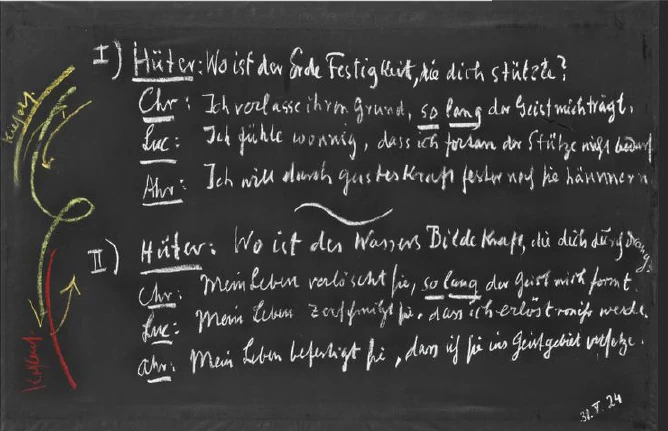 I) Hüter: Wo ist der Erde Festigkeit, die dich stützte?
Chr: Ich verlasse ihren Grund, so lang der Geist mich trägt.
Luc: Ich fühle wonnig, dass ich fortan der Stütze nicht bedarf
Ahr: Ich will durch Geistes Kraft fester noch sie hämmern
II) Hüter: Wo ist des Wassers Bildekraft, die dich durchdrang.
Chr: Mein Leben verlöscht sie, so lang der Geist mich formt.
Luc: Mein Leben zerschmilzt sie, dass ich erlöst von ihr werde.
Ahr: Mein Leben befestigt sie, dass ich sie ins Geistgebiet versetze.
31. V. 24